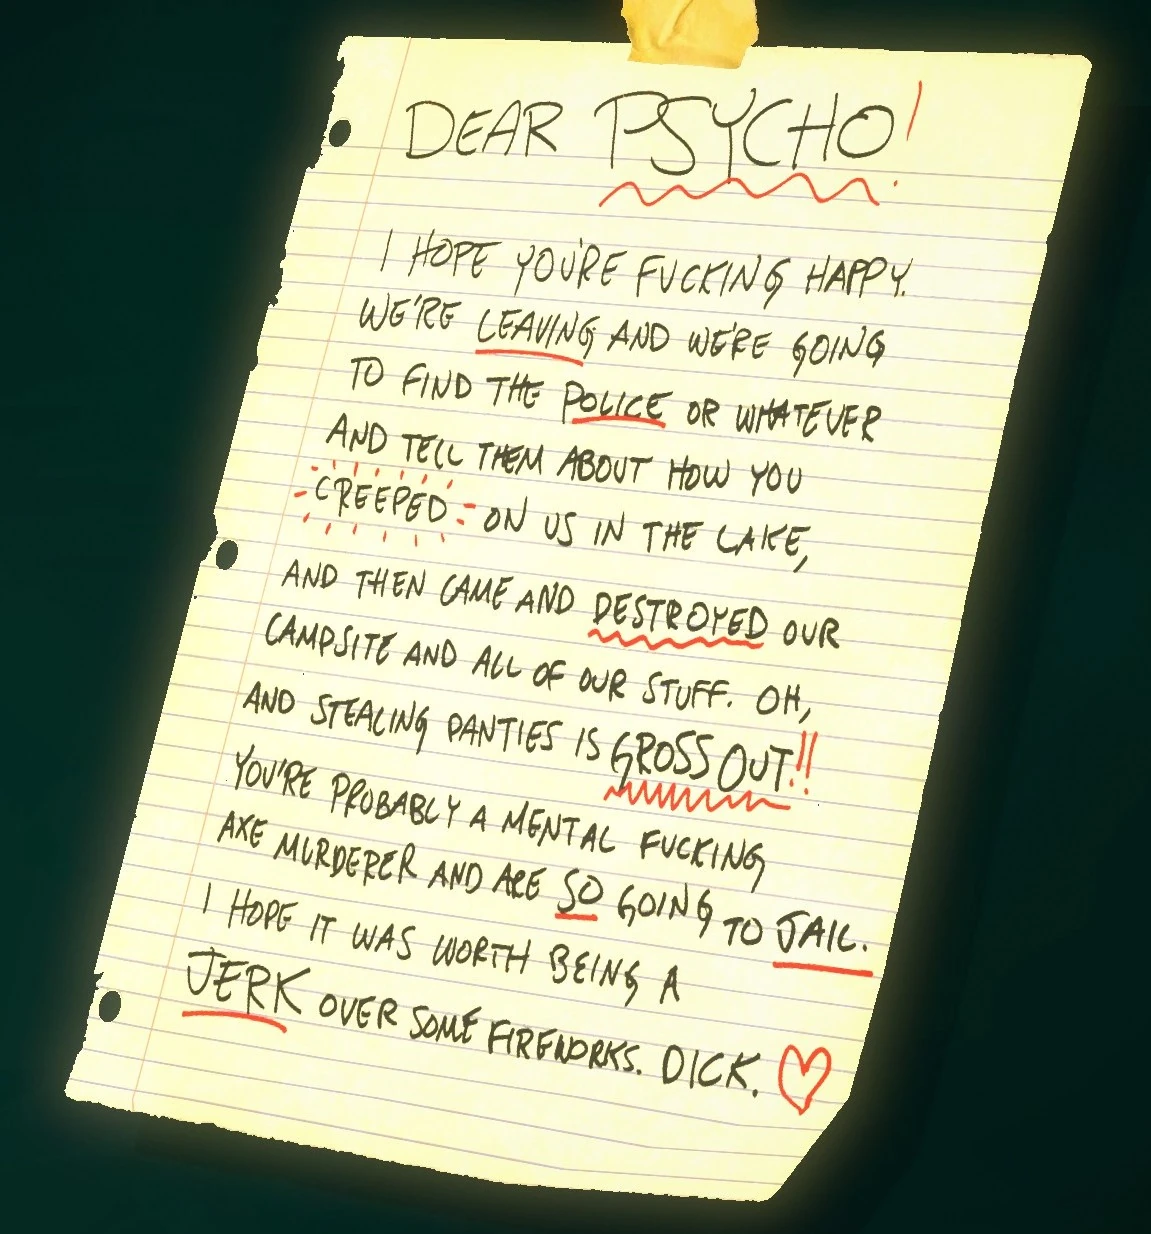 DEAR PSYCHO!
I HOPE YOU'RE FUCKING HAPPY.
WE'RE LEAVING AND WE'RE GOING
TO FIND THE POLICE OR WHATEVER
AND TELL THEM ABOUT HOW YOU
CREEPED ON US IN THE LAKE,
AND THEN CAME AND DESTROYED OUR
CAMPSITE AND ALL OF OUR STUFF. OH,
AND STEALING PANTIES IS GROSS OUT!!
YOU'RE PROBABLY A MENTAL FUCKING
AXE MURDERER AND ARE SO GOING TO JAIL.
I HOPE IT WAS WORTH BEING A
JERK OVER SOME FIREWORKS. DICK.